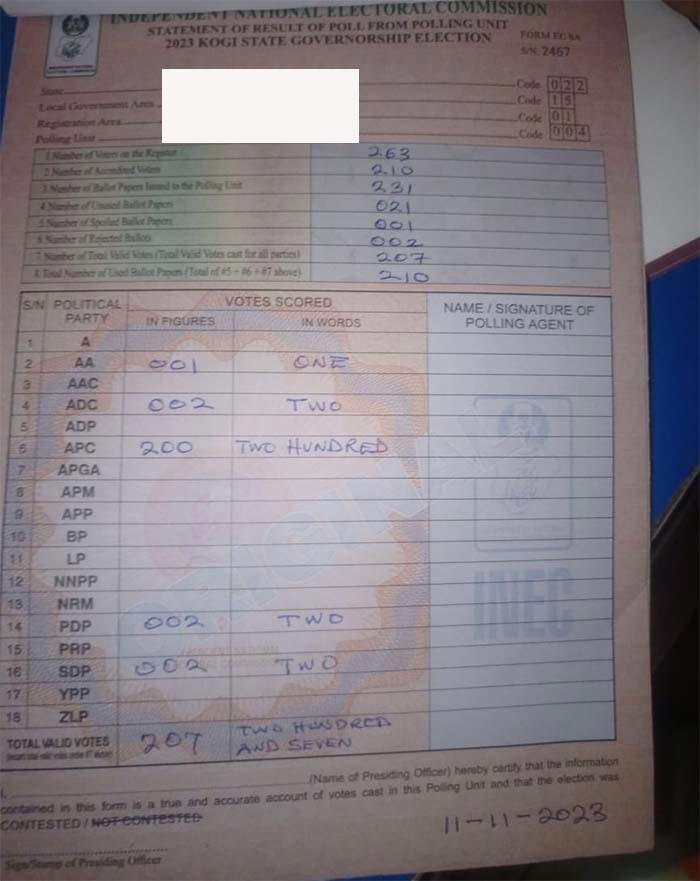 INDEPENDENT NATIONAL ELECTORAL COMMISSION
STATEMENT OF RESULT OF POLL FROM POLLING UNIT
2023 KOGI STATE GOVERNORSHIP ELECTION
FORM EC 8A
S/N: 2467
State Code 022
Local Government Area Code 15
Registration Area Code 01
Polling Unit Code 004
1. Number of Voters on the Register 263
2. Number of Accredited Voters 210
3. Number of Ballot Papers Issued to the Polling Unit 231
4. Number of Unused Ballot Papers 021
5. Number of Spoiled Ballot Papers 001
6. Number of Rejected Ballots 002
7. Number of Total Valid Votes (Total Valid Votes cast for all parties) 207
8. Total Number of Used Ballot Papers (Total of #5 + #6 + #7 above) 210
S/N POLITICAL PARTY VOTES SCORED NAME / SIGNATURE OF POLLING AGENT
IN FIGURES IN WORDS
1 A
2 AA 001 ONE
3 AAC
4 ADC 002 TWO
5 ADP
6 APC 200 TWO HUNDRED
7 APGA
8 APM
9 APP
10 BP
11 LP
12 NNPP
13 NRM
14 PDP 002 TWO
15 PRP
16 SDP 002 TWO
17 YPP
18 ZLP
TOTAL VALID VOTES 207 TWO HUNDRED AND SEVEN
ORIGINAL
INEC
I, (Name of Presiding Officer) hereby certify that the information
contained in this form is a true and accurate account of votes cast in this Polling Unit and that the election was
CONTESTED / NOT CONTESTED
11-11-2023
Sign/Stamp of Presiding Officer